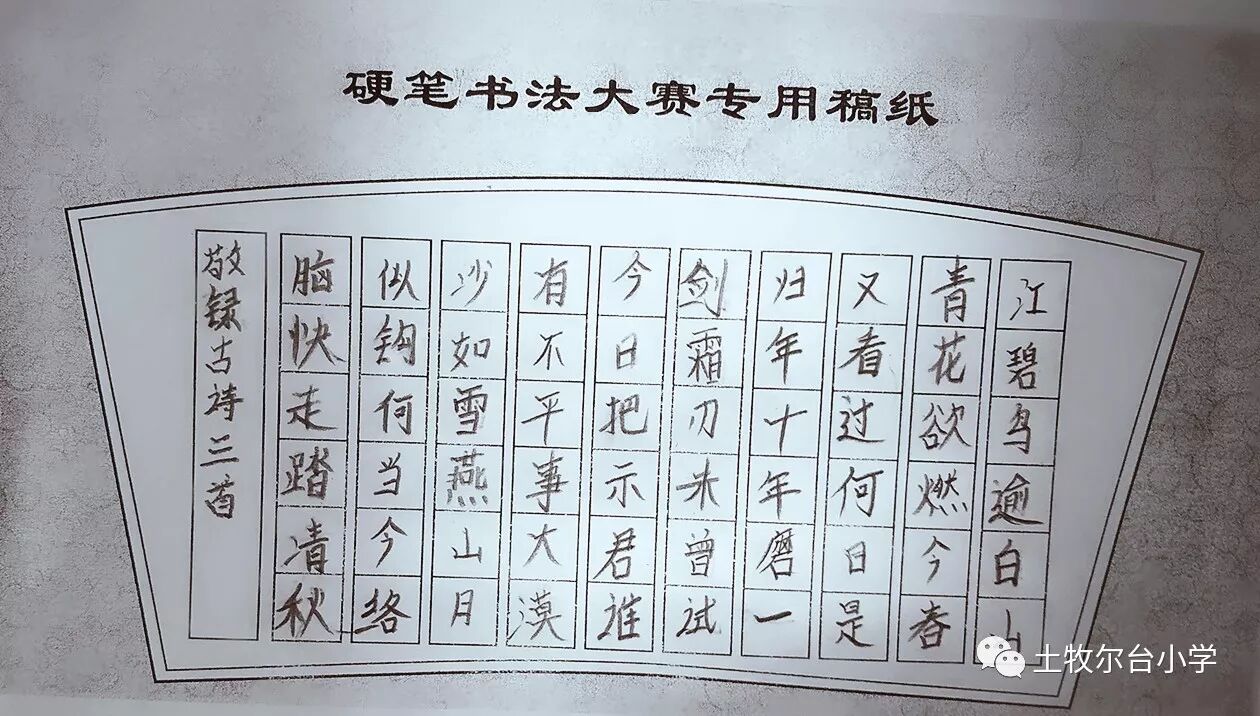 硬笔书法大赛专用稿纸
江碧鸟逾白山
青花欲燃今春
又看过何日是
归年十年磨一
剑霜刃未曾试
今日把示君谁
有不平事大漠
沙如雪燕山月
似钩何当今络
脑快走踏清秋
敬録古诗三首
土牧尔台小学